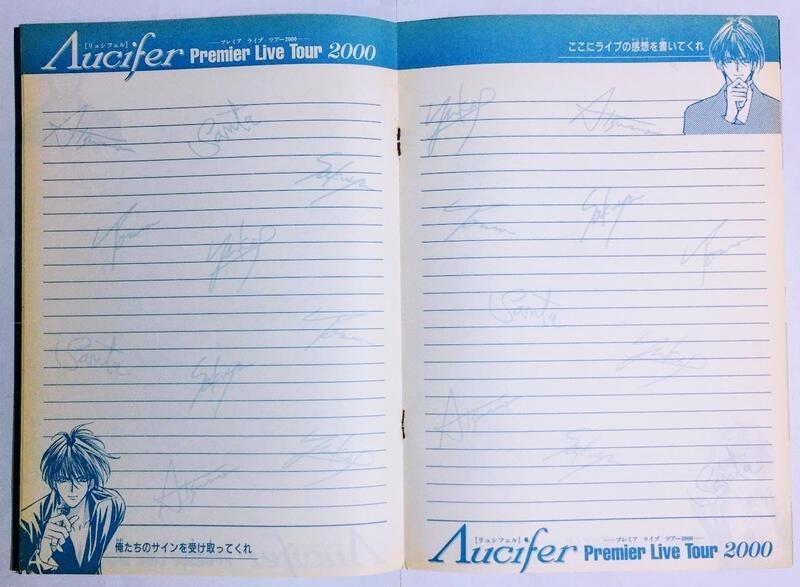 Λucifer
[リュシフェル]
プレミア ライブ ツアー2000
Premier Live Tour 2000
ここにライブの感想を書いてくれ
Santa
Santa
Santa
Santa
俺たちのサインを受け取ってくれ
Λucifer
[リュシフェル]
プレミア ライブ ツアー2000
Premier Live Tour 2000